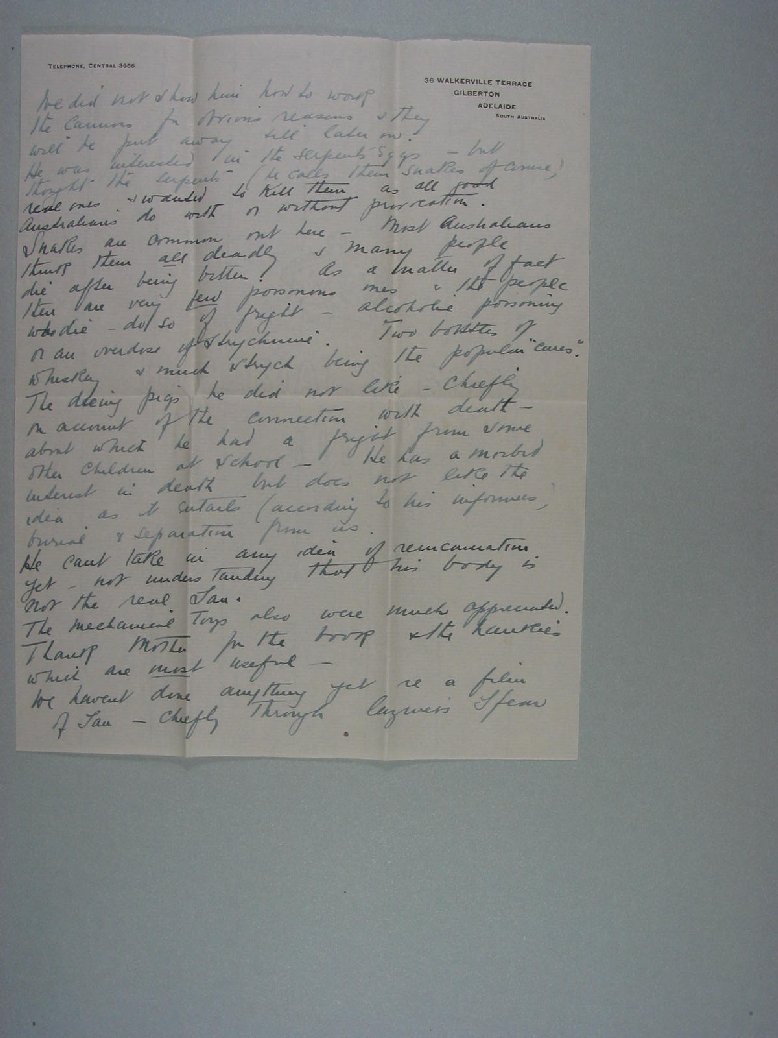 TELEPHONE, CENTRAL 3686
36 WALKERVILLE TERRACE
GILBERTON
ADELAIDE
SOUTH AUSTRALIA
We did not show him how to work
the Cannons for obvious reasons & they
will be put away till later on.
He was interested in the serpents Eggs – but
thought the serpents (he calls them snakes of course)
real ones & wanted to kill them as all good
Australians do with or without provocation.
Snakes are common out here – Most Australians
think them all deadly & many people
die after being bitten! As a matter of fact
there are very few poisonous ones & the people
who die – do so of fright – alcoholic poisoning
or an overdose of Strychnine. Two bottles of
whiskey & much strych being the popular "cures".
The dieing pigs he did not like – Chiefly
on account of the connection with death –
about which he had a fright from some
other children at school – He has a morbid
interest in death but does not like the
idea as it entails (according to his informers)
burial & separation from us.
He cant take in any idea of reincarnation
yet – not understanding that his body is
not the real Ian.
The mechanical Toys also were much appreciated.
Thank Mother for the book & the hankies
which are most useful –
We havent done anything yet re a film
of Ian – Chiefly through laziness I fear